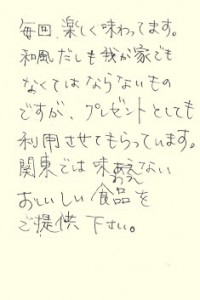 毎回、楽しく味わってます。
和風だしも我が家でも
なくてはならないもの
ですが、プレゼントとしても
利用させてもらっています。
関東では味あえない
おいしい食品を
ご提供下さい。